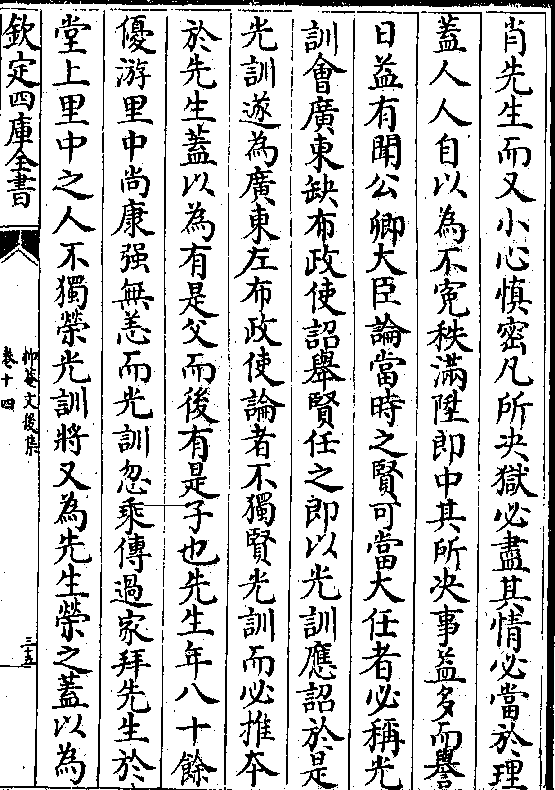 肖先生而又小心慎密凡所决獄必盡其情必當於理
蓋人人自以為不寃秩滿陞郎中其所决事益多而譽
日益有聞公卿大臣論當時之賢可當大任者必稱光
訓會廣東缺布政使詔舉賢任之即以光訓應詔於是
光訓遂為廣東左布政使論者不獨賢光訓而必推夲
於先生蓋以為有是父而後有是子也先生年八十餘
優游里中尚康强無恙而光訓忽乘傳過家拜先生於
堂上里中之人不獨榮光訓將又為先生榮之蓋以為
欽定四庫全書
抑菴文後集
卷十四
三五